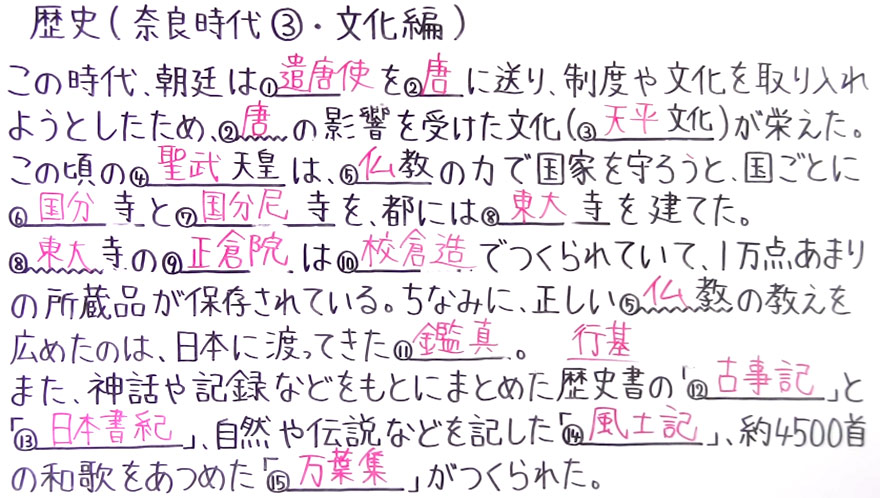 歴史(奈良時代③・文化編)
この時代、朝廷は①遣唐使を②唐に送り、制度や文化を取り入れ
ようとしたため、②唐の影響を受けた文化(③天平文化)が栄えた。
この頃の④聖武天皇は、⑤仏教の力で国家を守ろうと、国ごとに
⑥国分寺と⑦国分尼寺を、都には⑧東大寺を建てた。
⑧東大寺の⑨正倉院は⑩校倉造でつくられていて、1万点あまり
の所蔵品が保存されている。ちなみに、正しい⑤仏教の教えを
広めたのは、日本に渡ってきた⑪鑑真。 行基
また、神話や記録などをもとにまとめた歴史書の「⑫古事記」と
「⑬日本書紀」、自然や伝説などを記した「⑭風土記」、約4500首
の和歌をあつめた「⑮万葉集」がつくられた。